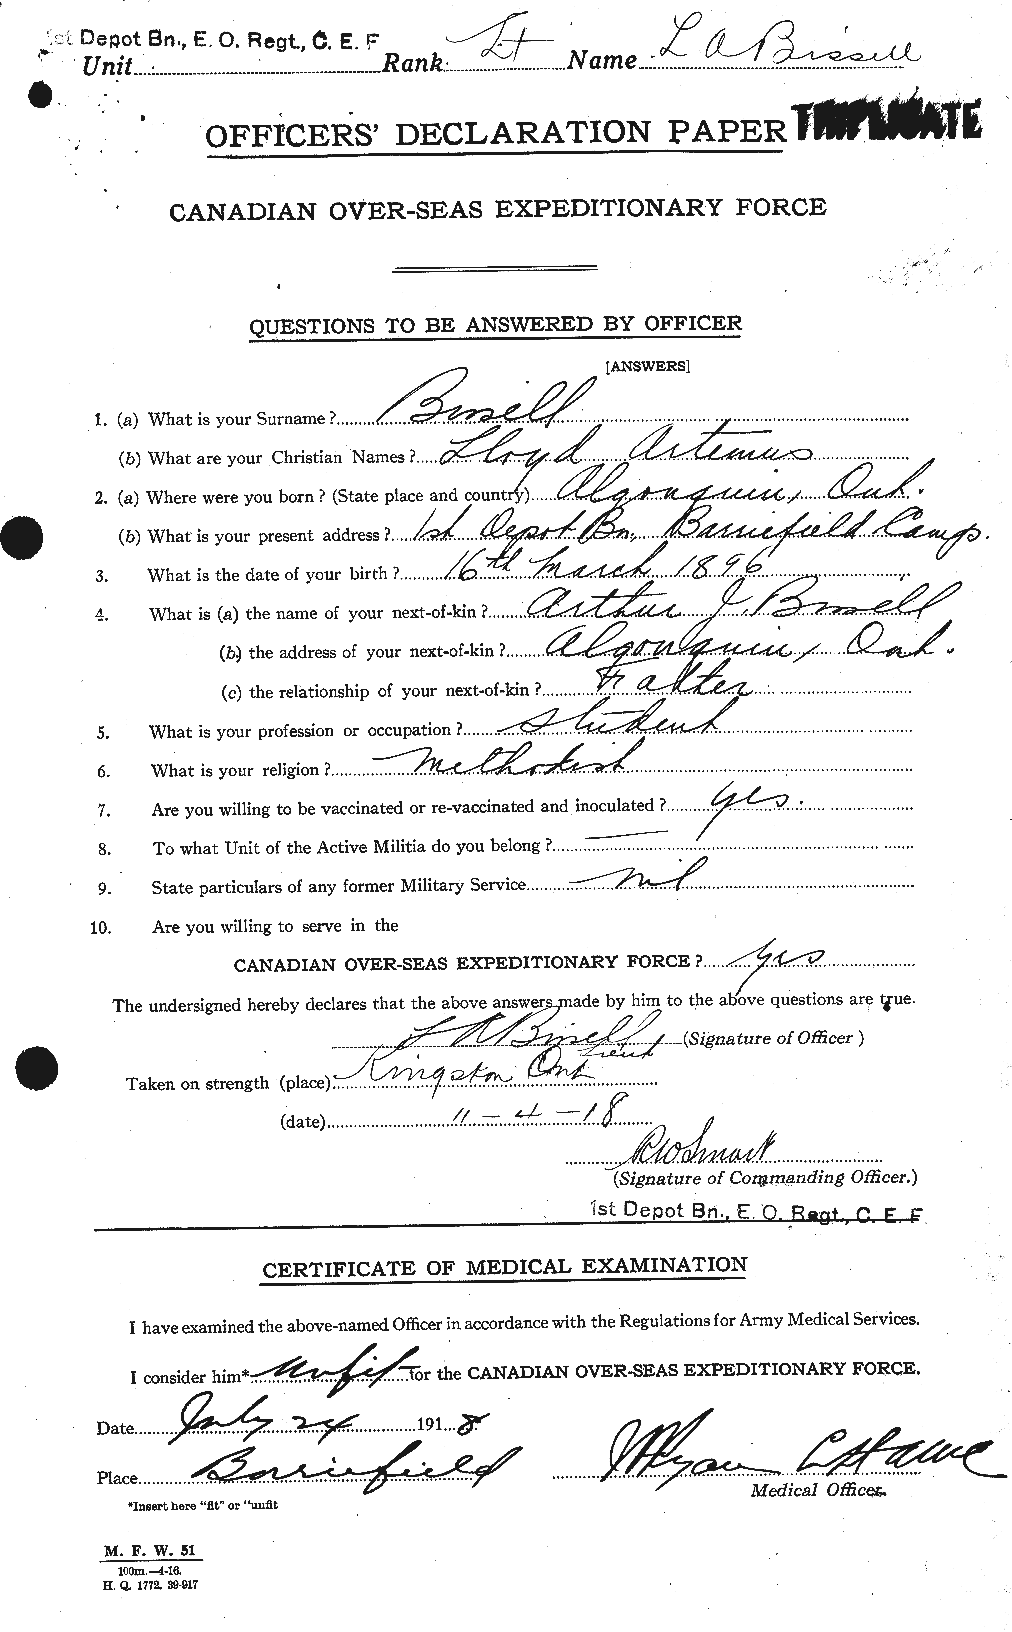 1st Depot Bn., E. O. Regt., C. E. F
Unit Rank Lt Name L A Bissell
OFFICERS' DECLARATION PAPER TRIPLICATE
CANADIAN OVER-SEAS EXPEDITIONARY FORCE
QUESTIONS TO BE ANSWERED BY OFFICER
[ANSWERS]
1. (a) What is your Surname? Bissell
(b) What are your Christian Names? Lloyd Artemus
2. (a) Where were you born? (State place and country) Algonquin, Ont.
(b) What is your present address? 1st Depot Bn, Barriefield Camp.
3. What is the date of your birth? 16th March 1896
4. What is (a) the name of your next-of-kin? Arthur J. Bissell
(b) the address of your next-of-kin? Algonquin, Ont.
(c) the relationship of your next-of-kin? Father
5. What is your profession or occupation? Student
6. What is your religion? Methodist
7. Are you willing to be vaccinated or re-vaccinated and inoculated? yes.
8. To what Unit of the Active Militia do you belong? —
9. State particulars of any former Military Service. nil
10. Are you willing to serve in the
CANADIAN OVER-SEAS EXPEDITIONARY FORCE? yes
The undersigned hereby declares that the above answers made by him to the above questions are true.
L A Bissell, Lieut (Signature of Officer)
Taken on strength (place) Kingston Ont
(date) 11-4-18
(Signature of Commanding Officer.)
1st Depot Bn., E. O. Regt., C. E. F
CERTIFICATE OF MEDICAL EXAMINATION
I have examined the above-named Officer in accordance with the Regulations for Army Medical Services.
I consider him* unfit for the CANADIAN OVER-SEAS EXPEDITIONARY FORCE.
Date July 24 1918
Place Barriefield
Medical Officer.
*Insert here "fit" or "unfit
M. F. W. 51
100m.—4-16.
H. Q. 1772. 39-917